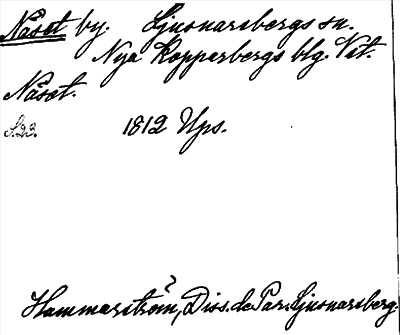 Näset by. Ljusnarsbergs sn.
Nya Kopparbergs blg. Vst.
Näset.
S. 22. 1812 Ups.
Hammarström, Diss. de Par. Ljusnarsberg